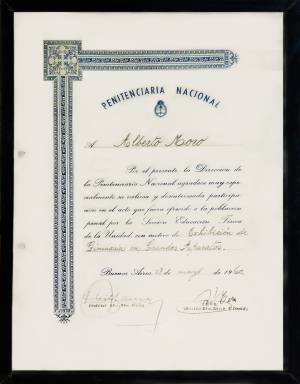 PENITENCIARIA NACIONAL
A Alberto Moro
Por el presente la Direccion de
la Penitenciaria Nacional agradece muy espe-
cialmente su valiosa y desinteresada participa-
cion en el acto que fuera ofrecido a la poblacion
penal por la Seccion Educacion Fisica
de la Unidad con motivo de Exhibición de
Gimnasia en Grandes Aparatos.
Buenos Aires 23 de mayo de 1960